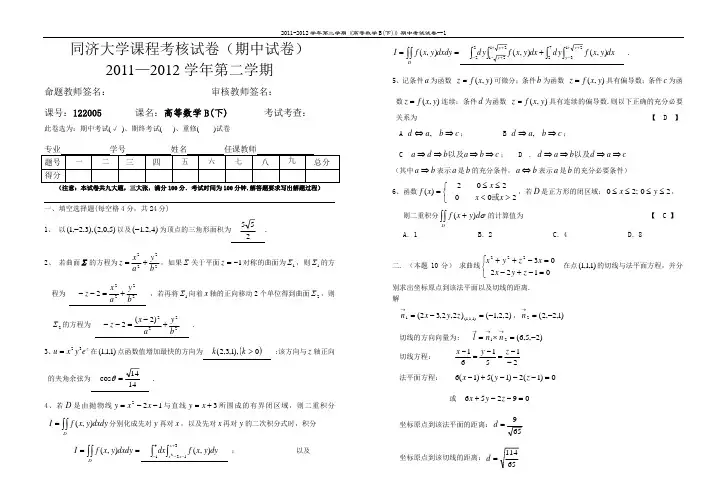 2011-2012 学年第二学期《高等数学 B(下)》期中考试试卷—1
同济大学课程考核试卷（期中试卷）
2011—2012 学年第二学期
命题教师签名： 审核教师签名：
课号：122005 课名：高等数学B(下) 考试考查：
此卷选为：期中考试(√ )、期终考试( )、重修( )试卷
专业 学号 姓名 任课教师
题号 一 二 三 四 五 六 七 八 九 总分
得分
（注意：本试卷共九大题，三大张，满分100分．考试时间为100分钟.解答题要求写出解题过程）
一、填空选择题(每空格4分，共24分)
1、 以(1,−2,3),(2,0,5)以及(−1,2,4)为顶点的三角形面积为 5√5/2 .
2、 若曲面Σ的方程为z = x²/a² + y²/b²，如果Σ关于平面z = −1对称的曲面为Σ₁，则Σ₁的方
程为 −z−2 = x²/a² + y²/b² ，若再将Σ₁向着x轴的正向移动2个单位得到曲面Σ₂，则
Σ₂的方程为 −z−2 = (x−2)²/a² + y²/b² .
3、u = x²y³eᶻ在(1,1,1)点函数值增加最快的方向为 k(2,3,1),(k > 0) ;该方向与z轴正向
的夹角余弦为 cosθ = √14/14 .
4、若D是由抛物线y = x² − 2x − 1与直线y = x + 3所围成的有界闭区域，则二重积分
I = ∬_D f(x,y)dxdy分别化成先对y再对x，以及先对x再对y的二次积分式时，积分
I = ∬_D f(x,y)dxdy = ∫_{-1}^{4} dx ∫_{x²−2x−1}^{x+3} f(x,y)dy ； 以及
I = ∬_D f(x,y)dxdy = ∫_{-2}^{2} dy ∫_{1−√(y+2)}^{1+√(y+2)} f(x,y)dx + ∫_{2}^{7} dy ∫_{y−3}^{1+√(y+2)} f(x,y)dx .
5、记条件a为函数 z = f(x,y)可微分；条件b为函数 z = f(x,y)具有偏导数；条件c为函
数z = f(x,y)连续；条件d为函数 z = f(x,y)具有连续的偏导数.则以下正确的充分必要
关系为 【 D 】
A d ⇔ a, b ⇒ c； B d ⇒ a, b ⇒ c；
C a ⇒ d ⇒ b以及a ⇒ b ⇒ c； D . d ⇒ a ⇒ b以及d ⇒ a ⇒ c
(其中a ⇒ b表示a是b的充分条件，a ⇔ b表示a是b的充分必要条件)
6、函数f(x) = { 2 0 ≤ x ≤ 2
0 x < 0或x > 2 ，若D是正方形的闭区域：0 ≤ x ≤ 2; 0 ≤ y ≤ 2，
则二重积分∬_D f(x+y)dσ的计算值为 【 C 】
A．1 B．2 C．4 D．8
二．(本题 10 分) 求曲线{ x² + y² + z² − 3x = 0
2x − 2y + z − 1 = 0 在点(1,1,1)的切线与法平面方程，并分
别求出坐标原点到该法平面以及切线的距离.
解
n₁ = (2x−3,2y,2z)|₍₁,₁,₁₎ = (−1,2,2)，n₂ = (2,−2,1)
切线的方向向量为： l = n₁ × n₂ = (6,5,−2)
切线方程： (x−1)/6 = (y−1)/5 = (z−1)/−2
法平面方程： 6(x−1)+5(y−1)−2(z−1) = 0
或 6x+5y−2z−9 = 0
坐标原点到该法平面的距离：d = 9/√65
坐标原点到该切线的距离：d = √(114/65)